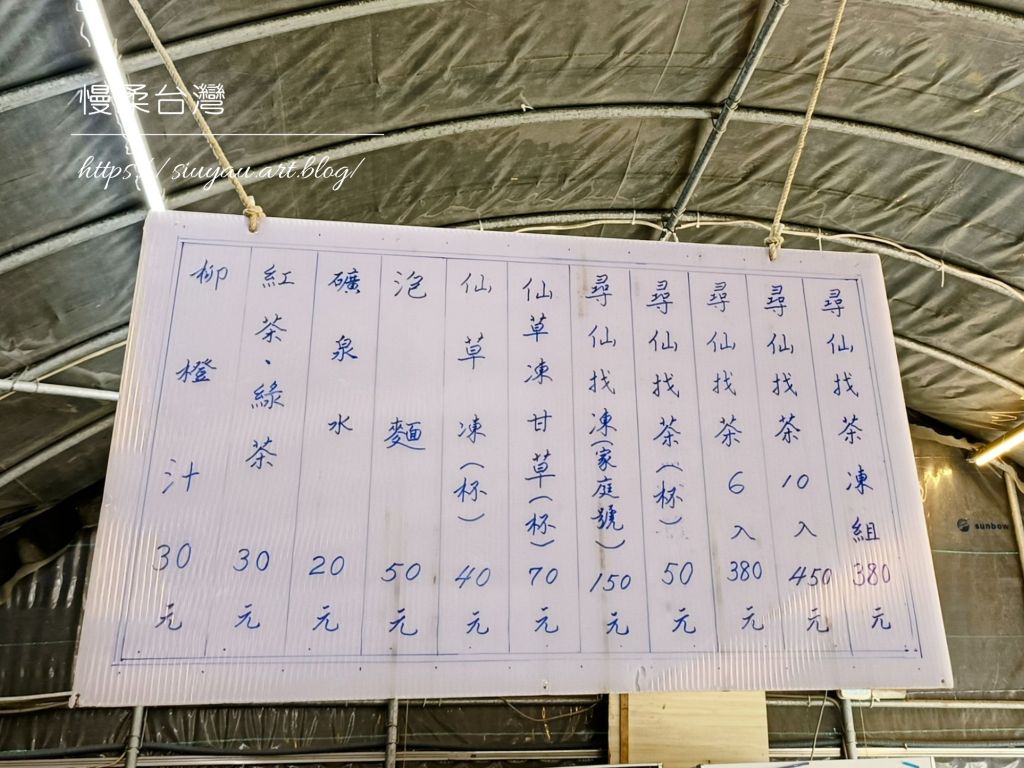 慢柔台灣
https://siuyau.art.blog/
尋仙找茶凍組380元
尋仙找茶10入450元
尋仙找茶6入380元
尋仙找茶(杯)50元
尋仙找凍(家庭號)150元
仙草凍甘草(杯)70元
仙草凍(杯)40元
泡麵50元
礦泉水20元
紅茶、綠茶30元
柳橙汁30元
sunbow